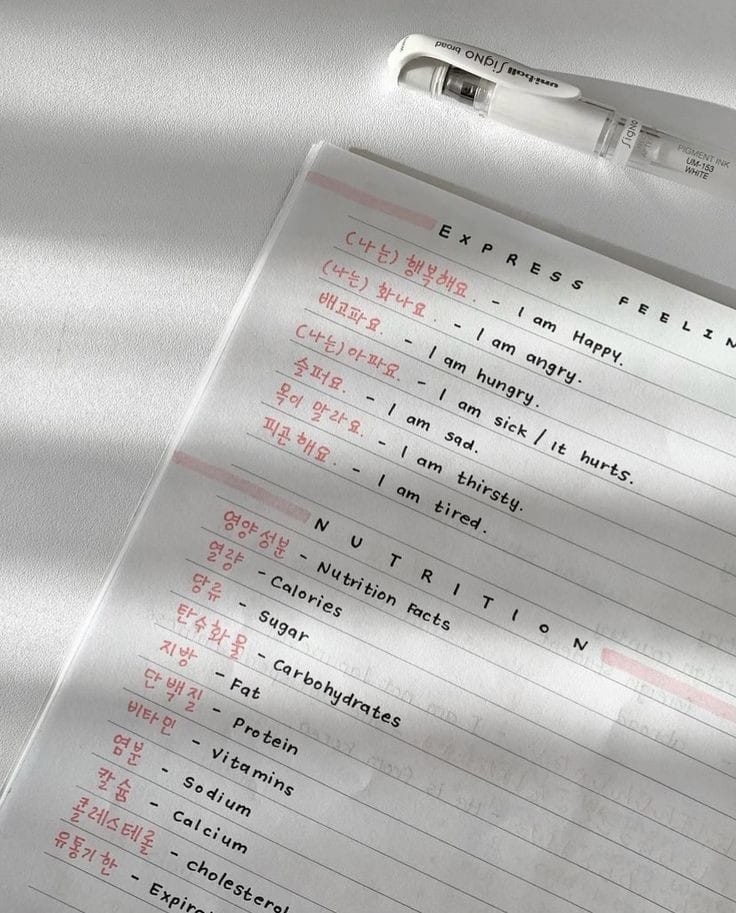 uni-ball SigNO broad
SigNO
PIGMENT INK
UM-153
WHITE
EXPRESS FEELIN
(나는) 행복해요. - I am Happy.
(나는) 화나요. - I am angry.
배고파요. - I am hungry.
(나는) 아파요. - I am sick / It hurts.
슬퍼요. - I am sad.
목이 말라요. - I am thirsty.
피곤해요. - I am tired.
NUTRITION
영양성분 - Nutrition Facts
열량 - Calories
당류 - Sugar
탄수화물 - Carbohydrates
지방 - Fat
단백질 - Protein
비타민 - Vitamins
염분 - Sodium
칼슘 - Calcium
콜레스테롤 - cholesterol
유통기한 - Expira